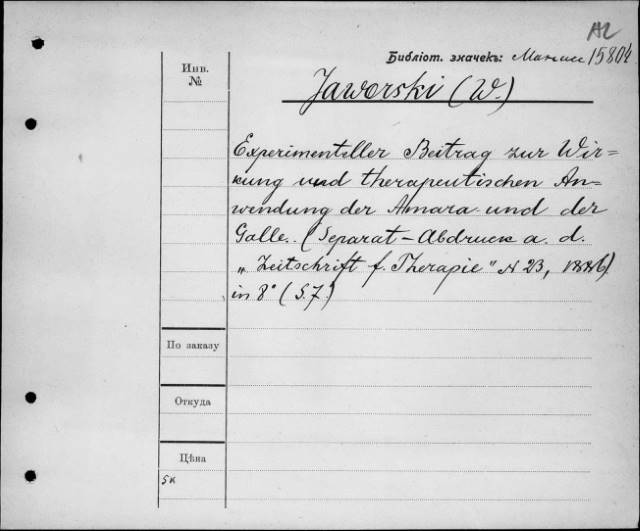 AL
Библіот. значекъ: 15804
Инв.
№
Jaworski (W.)
Experimenteller Beitrag zur Wir=
kung und therapeutischen An=
wendung der Amara und der
Galle. (Separat-Abdruck a. d.
„Zeitschrift f. Therapie" N 23, 1886)
in 8° (S.7.)
По заказу
Откуда
Цѣна
5к